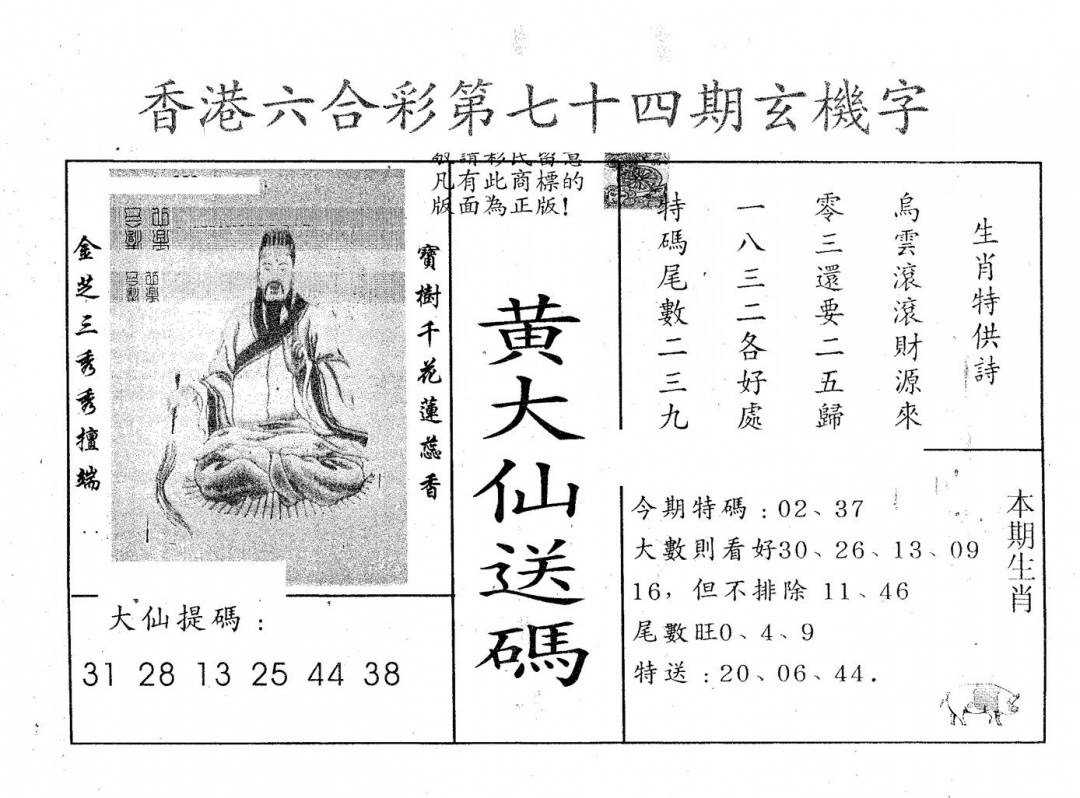 香港六合彩第七十四期玄機字
凡有此商標的
版面為正版!
生肖特供詩
烏雲滾滾財源來
零三還要二五歸
一八三二各好處
特碼尾數二三九
黃大仙送碼
寶樹千花蓮蕊香
金芝三秀秀擅端
大仙提碼：
31 28 13 25 44 38
本期生肖
今期特碼：02、37
大數則看好30、26、13、09
16，但不排除 11、46
尾數旺0、4、9
特送：20、06、44.